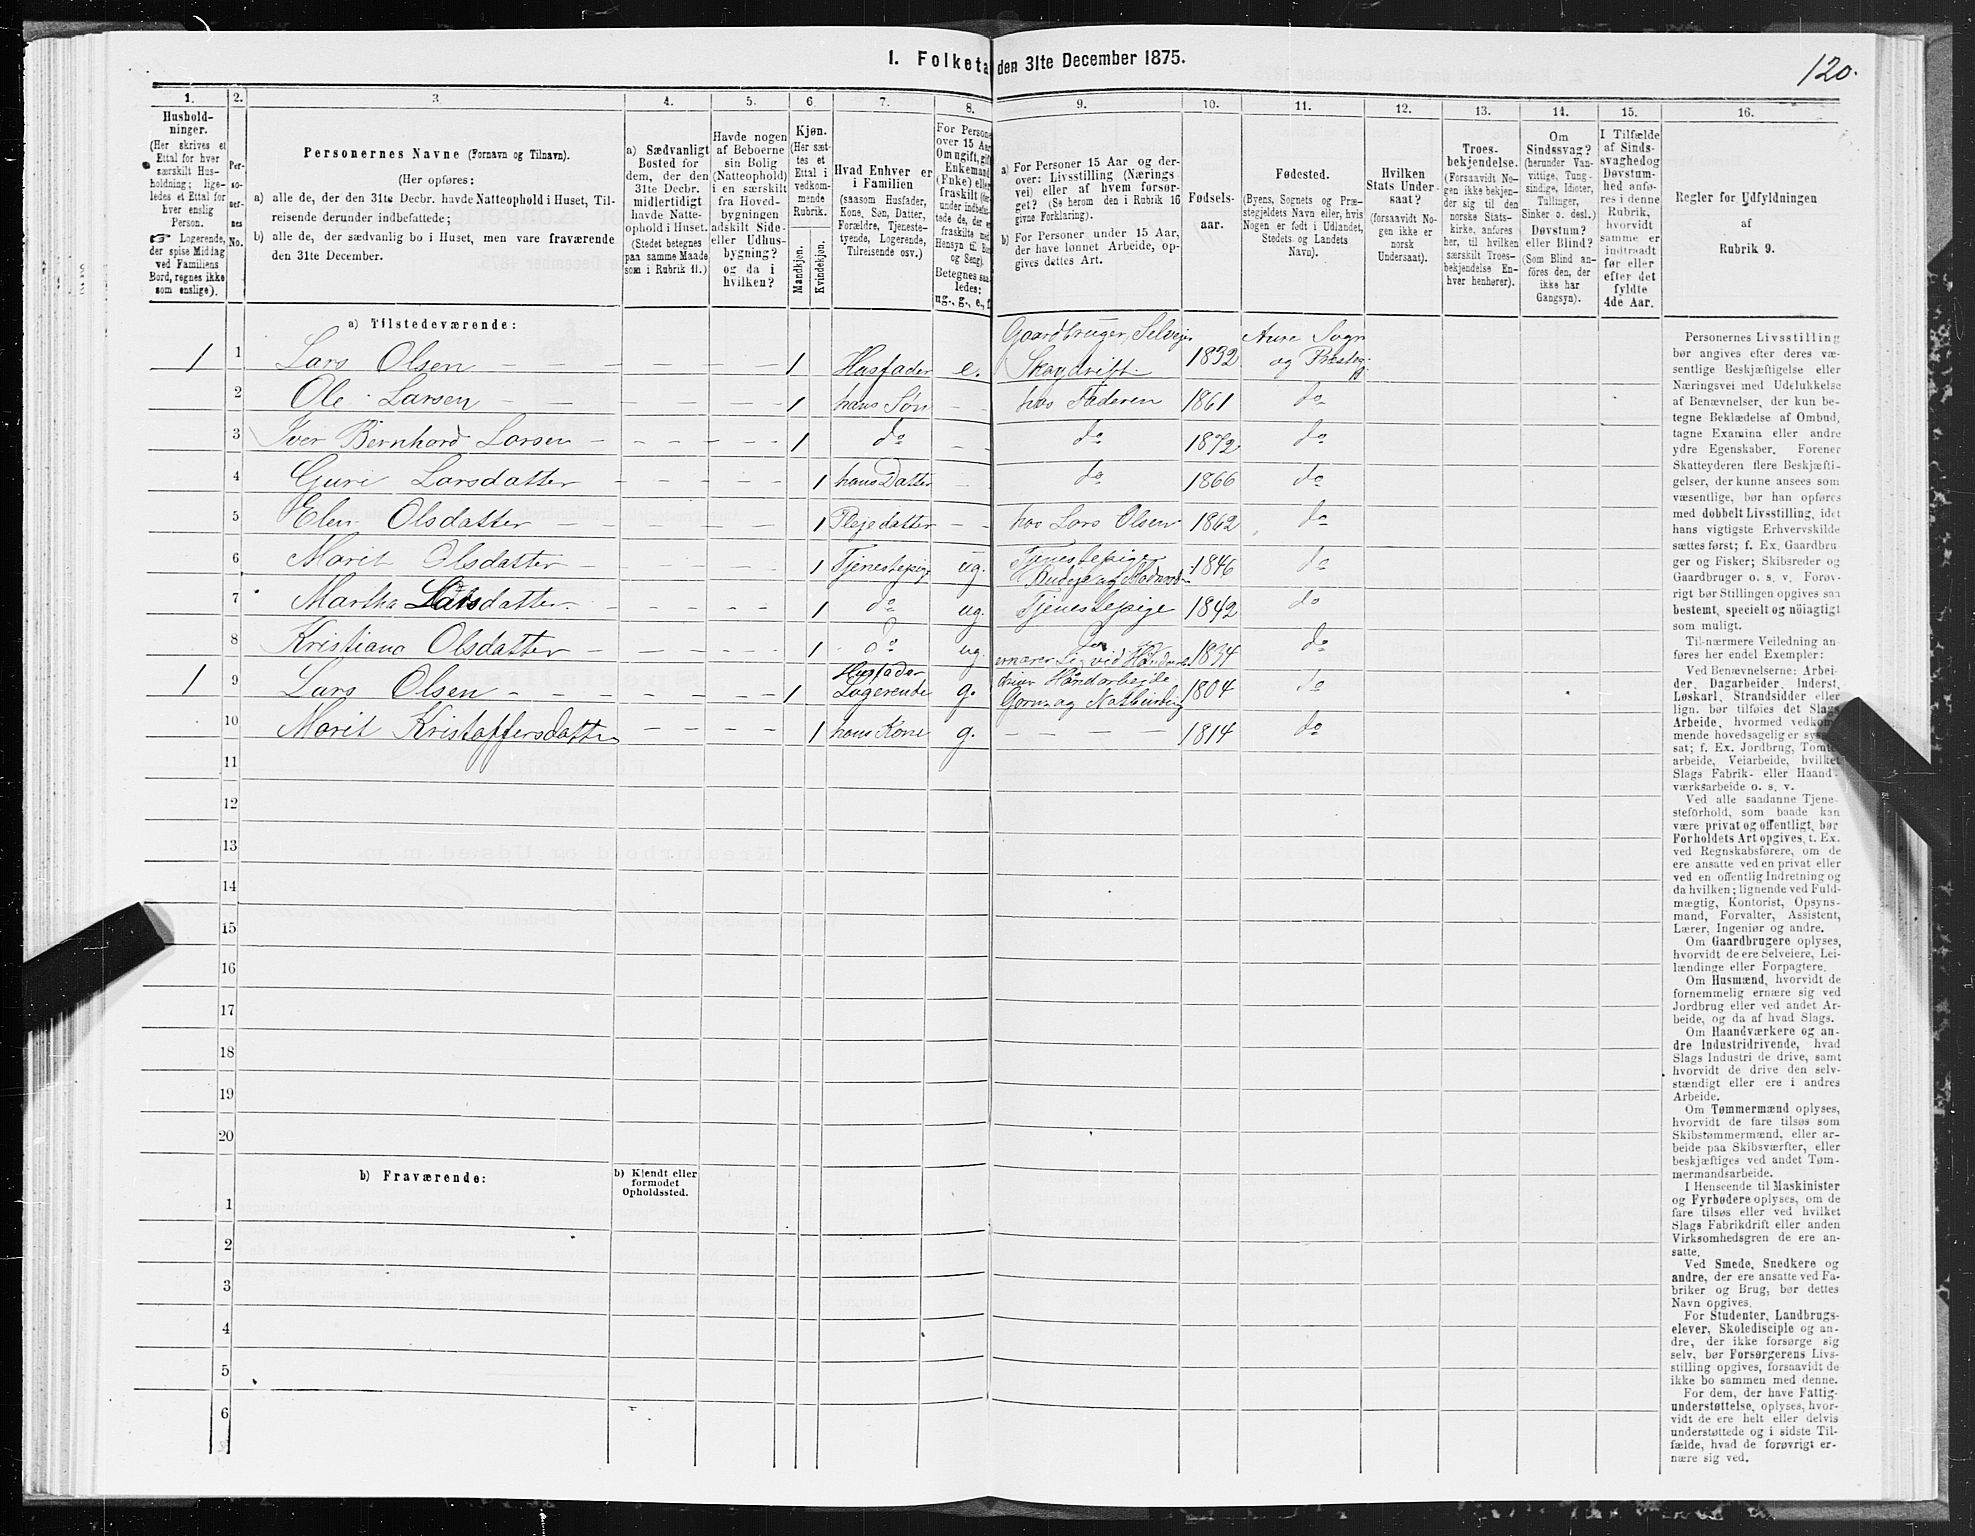 1. Folketa den 31te December 1875.
120.
1. 2. 3. 4. 5. 6. 7. 8. 9. 10. 11. 12. 13. 14. 15. 16.
Hushold-
ninger.
(Her skrives et
Ettal for hver
særskilt Hus-
holdning; lige-
ledes et Ettal for
hver enslig
Person.
☞ Logerende,
der spise Middag
ved Familiens
Bord, regnes ikke
som enslige).
Per-
so-
ner-
nes
No.
Personernes Navne (Fornavn og Tilnavn).
(Her opføres:
a) alle de, der den 31te Decbr. havde Natteophold i Huset, Til-
reisende derunder indbefattede;
b) alle de, der sædvanlig bo i Huset, men vare fraværende
den 31te December.
a) Sædvanligt
Bosted for
dem, der den
31te Decbr.
midlertidigt
havde Natte-
ophold i Huset.
(Stedet betegnes
paa samme Maade
som i Rubrik 11.)
Havde nogen
af Beboerne
sin Bolig
(Natteophold)
i en særskilt
fra Hoved-
bygningen
adskilt Side-
eller Udhus-
bygning?
og da i
hvilken?
Kjøn.
(Her sæt-
tes et
Ettal i
vedkom-
mende
Rubrik.
Mandkjøn.
Kvindekjøn.
Hvad Enhver er
i Familien
(saasom Husfader,
Kone, Søn, Datter,
Forældre, Tjeneste-
tyende, Logerende,
Tilreisende osv.)
For Persone
over 15 Aar
Om ugift, gift
Enkemand
(Enke) eller
fraskilt
under indbefat-
tede de, der er
fraskilte med
Hensyn til Bord
og Seng).
Betegnes saa-
ledes:
ug., g., e., f.
a) For Personer 15 Aar og der-
over: Livsstilling (Nærings
vei) eller af hvem forsør-
get? (Se herom den i Rubrik 16
givne Forklaring).
b) For Personer under 15 Aar,
der have lønnet Arbeide, op-
gives dettes Art.
Fødsels-
aar.
Fødested.
(Byens, Sognets og Præ-
stegjeldets Navn eller, hvis
Nogen er født i Udlandet,
Stedets og Landets
Navn).
Hvilken
Stats Under-
saat?
(forsaavidt No-
gen ikke er
norsk
Undersaat).
Troes-
bekjendelse.
(Forsaavidt No-
gen ikke bekjen-
der sig til den
norske Stats-
kirke, anføres
her, til hvilken
særskilt Troes-
bekjendelse En-
hver henhører).
Om
Sindssvag?
(herunder Van-
vittige, Tung-
sindige, Idioter,
Tullinger,
Sinker o. desl.)
Døvstum?
eller Blind?
(Som Blind an-
føres den, der
ikke har
Gangsyn).
I Tilfælde
af Sinds-
svaghed og
Døvstum-
hed anfø-
res i denne
Rubrik,
hvorvidt
samme er
indtraadt
før eller
efter det
fyldte
4de Aar.
Regler for Udfyldningen
af
Rubrik 9.
a) Tilstedeværende:
1 1 Lars Olsen 1 Husfader e. Gaardbruger, Selveier Skovdrift 1832 Aure Sogn og Præsteg.
2 Ole Larsen 1 hans Søn hos Faderen 1861 do
3 Iver Bernhard Larsen 1 do do 1872 do
4 Guri Larsdatter 1 hans Datter do 1866 do
5 Elen Olsdatter 1 Plejedatter hos Lars Olsen 1862 do
6 Marit Olsdatter 1 Tjenestepige ug. Tjenestepige 1846 do
7 Martha Larsdatter 1 do ug. Tjenestepige 1842 do
8 Kristiana Olsdatter 1 do ug. ernærer sig ved 1834 do
1 9 Lars Olsen 1 Husfader Logerende g. 1804 do
10 Marit Kristoffersdatter 1 hans Kone g. 1814 do
11
12
13
14
15
16
17
18
19
20
b) Fraværende:
b) Kjendt eller
formodet
Opholdssted.
1
2
3
4
5
6
Personernes Livsstilling
bør angives efter deres væ-
sentlige Beskjæftigelse eller
Næringsvei med Udelukkelse
af Benævnelser, der kun be-
tegne Beklædelse af Ombud,
tagne Examina eller andre
ydre Egenskaber. Forener
Skatteyderen flere Beskjæfti-
gelser, der kunne ansees som
væsentlige, bør han opføres
med dobbelt Livsstilling, idet
hans vigtigste Erhvervskilde
sættes først; f. Ex. Gaardbru-
ger og Fisker; Skibsreder og
Gaardbruger o. s. v. Forøv-
rigt bør Stillingen opgives saa
bestemt, specielt og nöiagtigt
som muligt.
Til nærmere Veiledning an-
føres her endel Exempler:
Ved Benævnelserne: Arbei-
der, Dagarbeider, Inderst,
Løskarl, Strandsidder eller
lign. bør tilføies det Slags
Arbeide, hvormed vedkom-
mende hovedsagelig er syssel-
sat; f. Ex. Jordbrug, Tomte-
arbeide, Veiarbeide, hvilket
Slags Fabrik- eller Haand-
værksarbeide o. s. v.
Ved alle saadanne Tjene-
steforhold, som baade kan
være privat og offentligt, bør
Forholdets Art opgives, t. Ex.
ved Regnskabsførere, om de
ere ansatte ved en privat eller
ved en offentlig Indretning og
da hvilken; lignende ved Fuld-
mægtig, Kontorist, Opsyns-
mand, Forvalter, Assistent,
Lærer, Ingeniør og andre.
Om Gaardbrugere oplyses,
hvorvidt de ere Selveiere, Lei-
lændinge eller Forpagtere.
Om Husmænd, hvorvidt de
fornemmelig ernære sig ved
Jordbrug eller ved andet Ar-
beide, og da af hvad Slags.
Om Haandværkere og an-
dre Industridrivende, hvad
Slags Industri de drive, samt
hvorvidt de drive den selv-
stændigt eller ere i andres
Arbeide.
Om Tømmermænd oplyses,
hvorvidt de fare tilsøs som
Skibstømmermænd, eller ar-
beide paa Skibsværfter, eller
beskjæftiges ved andet Tøm-
mermandsarbeide.
I Henseende til Maskinister
og Fyrbødere oplyses, om de
fare tilsøs eller ved hvilket
Slags Fabrikdrift eller anden
Virksomhedsgren de ere an-
satte.
Ved Smede, Snedkere og
andre, der ere ansatte ved Fa-
briker og Brug, bør dettes
Navn opgives.
For Studenter, Landbrugs-
elever, Skoledisciple og an-
dre, der ikke forsørge sig
selv, bør Forsørgerens Livs-
stilling opgives, forsaavidt de
ikke bo sammen med denne.
For dem, der have Fattig-
understøttelse, oplyses, hvor-
vidt de ere helt eller delvis
understøttede og i sidste Til-
fælde, hvad de forøvrigt er-
nære sig ved.